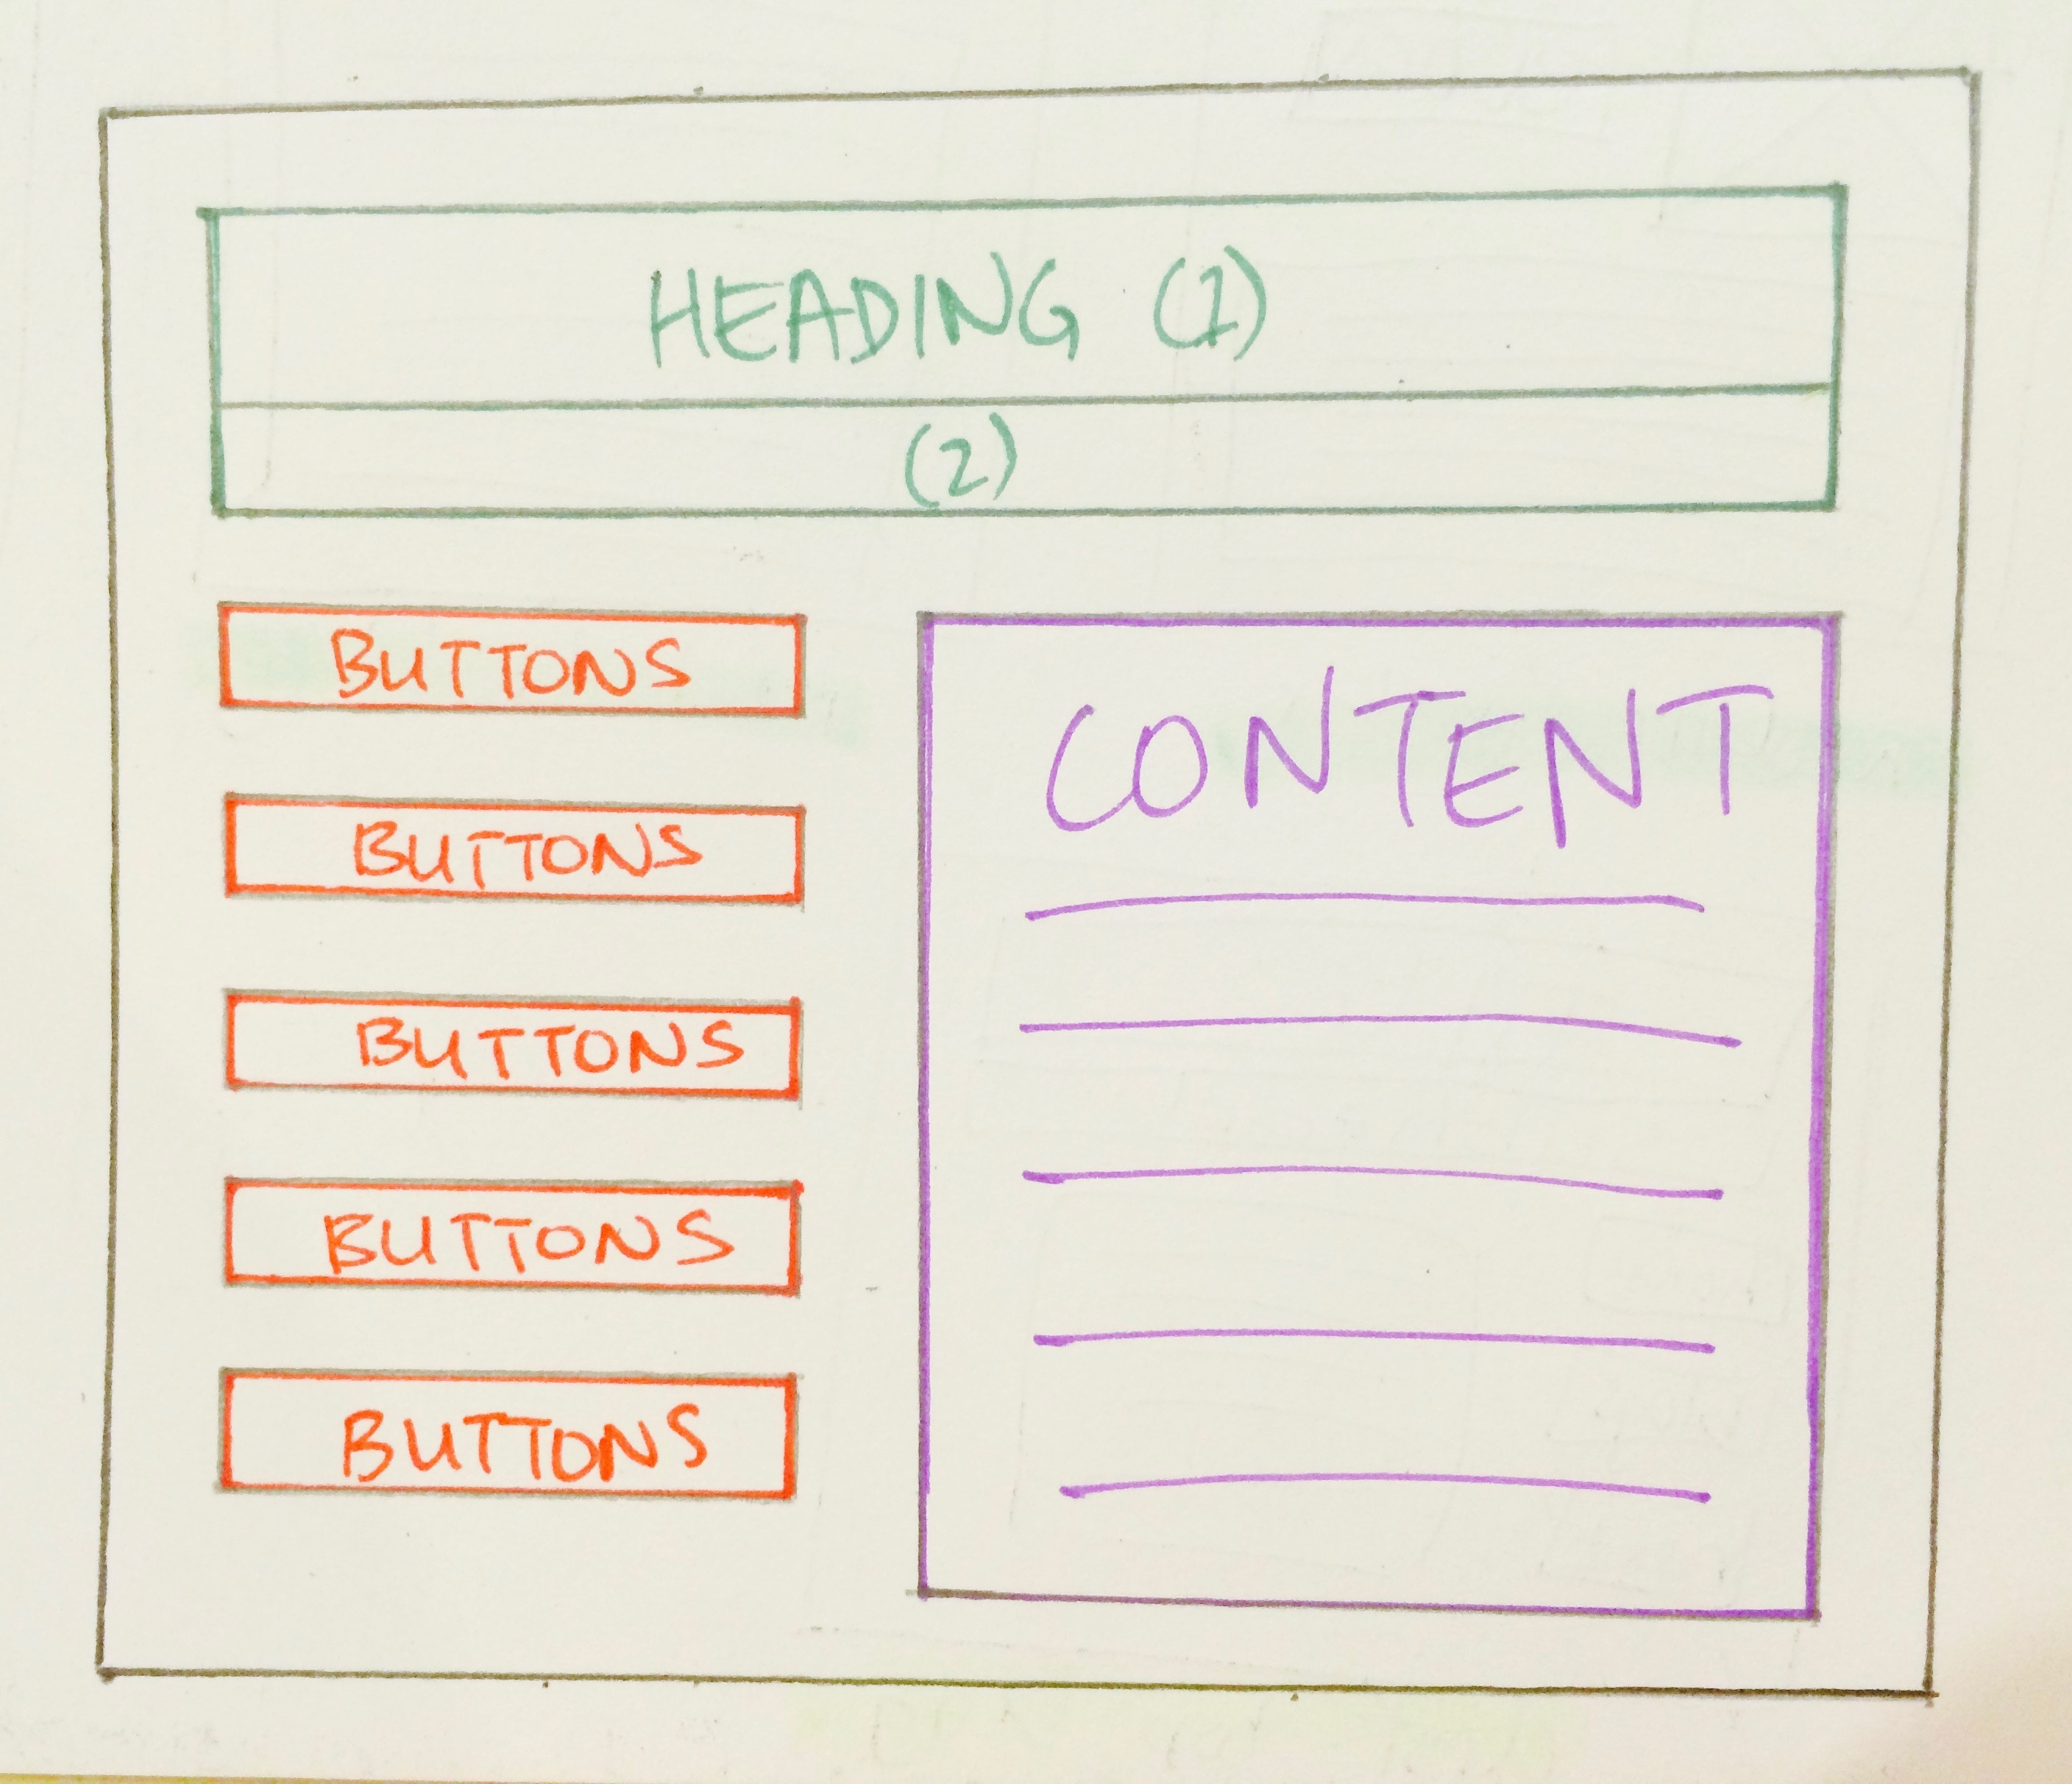 HEADING (1)
(2)
BUTTONS
BUTTONS
BUTTONS
BUTTONS
BUTTONS
CONTENT